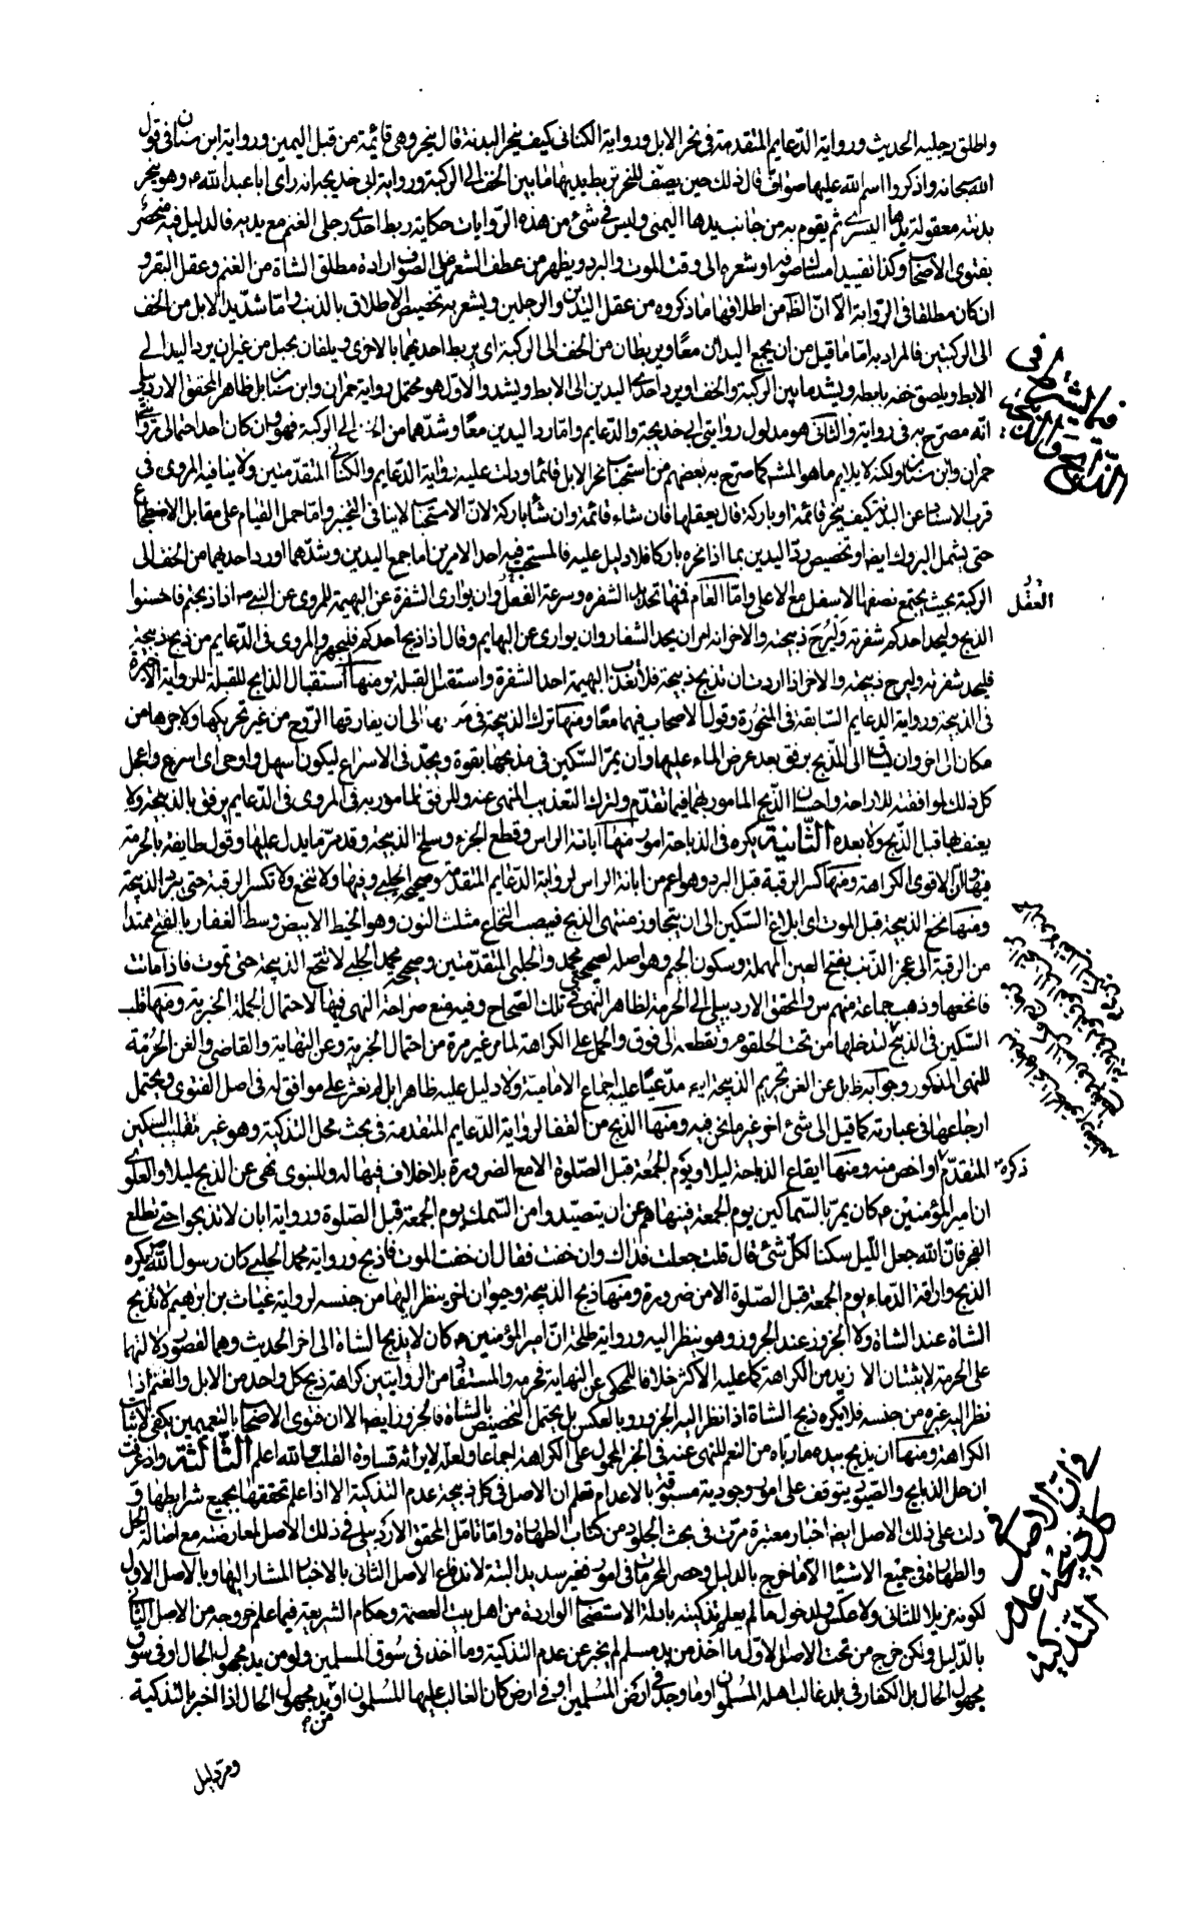 واطلق رجليه الحديث ورواية الدعايم المتقدمة فى نحر الابل ورواية الكنانى كيف ينحر البدنة قال ينحر وهى قائمة من قبل اليمين ورواية ابن سنان فى قول
الله سبحانه واذكروا اسم الله عليها صواف قال ذلك حين يصف للنحر يربط يديها ما بين الخف الى الركبة ورواية ابى خديجة انه راى ابا عبد الله ع وهو ينحر
بدنته معقولة يدها اليسرى ثم يقوم به من جانب يدها اليمنى وليس فى شئ من هذه الروايات حكاية ربط احدى رجلى الغنم مع يديه فالدليل فيه منحصر
بفتوى الاصحاب وكذا تقييد امساك صوفه او شعره الى وقت الموت والبرد ويظهر من عطف الشعر على الصوف ارادة مطلق الشاة من الغنم وعقل البقر و
ان كان مطلقا فى الرواية الا ان الظ من اطلاقها ما ذكروه من عقل اليدين والرجلين ويشعر به تخصيص الاطلاق بالذنب واما شد يد الابل من الخف
الى الركبتين فالمراد به اما ما قيل من ان يجمع اليدان معا ويربطان من الخف الى الركبة اى يربط احديهما بالاخرى ويلفان بحبل من غير ان يرد اليد الى
الابط ويلصق خفه بابطه ويشد ما بين الركبة والخف او يرد احدى اليدين الى الابط ويشد والاول هو محتمل رواية حمران وابن سنان بل ظاهر المحقق الاردبيلى
انه مصرح به فى رواية والثانى هو مدلول روايتى ابى خديجة والدعايم واما رد اليدين معا وشدهما من الخف الى الركبة فهو وان كان احد احتمالى روايتى
حمران وابن سنان ولكنه لا يلايم ما هو المش كما صرح به بعضهم من استحباب نحر الابل قائما ودلت عليه رواية الدعايم والكنانى المتقدمتين ولا ينافيه المروى فى
قرب الاسناد عن البدنة كيف ينحر قائمة او باركة قال يعقلها فان شاء قائمة وان شاء باركة لان الاستحباب لا ينافى التخيير واما حمل القيام على مقابل الاضطجاع
حتى يشمل البروك ايضا وتخصيص رد اليدين بما اذا نحره باركا فلا دليل عليه فالمستحب فيه احد الامرين اما جمع اليدين وشدهما او رد احديهما من الخف الى
الركبة بحيث يجتمع نصفها الاسفل مع الاعلى واما العام فمنها تحديد الشفره وسرعة الفعل وان يوارى الشفرة عن البهيمة للمروى عن النبى ص اذا ذبحتم فاحسنوا
الذبح وليحد احدكم شفرته وليرح ذبيحته والاخر انه امر ان يحد الشفار وان يوارى عن البهايم وقال اذا ذبح احدكم فليجهز والمروى فى الدعايم من ذبح ذبيحة
فليحد شفرته وليرح ذبيحته والاخر اذا اردت ان تذبح ذبيحة فلا تعذب البهيمة احد الشفرة واستقبل القبلة ومنها استقبال الذابح للقبلة للرواية الاخيرة
فى الذبيحة ورواية الدعايم السابقة فى المنحورة وقول الاصحاب فيهما معا ومنها ترك الذبيحة فى مكانها الى ان يفارقها الروح من غير تحريكها ولا جرها من
مكان الى اخر وان يساق الى الذبح برفق بعد عرض الماء عليها وان يمر السكين فى مذبحها بقوة ويجد فى الاسراع ليكون اسهل واوحى اى اسرع واعجل
كل ذلك لموافقته للاراحة واحسان الذبح المامور بهما فيما تقدم ولترك التعذيب المنهى عنه وللرفق المامور به فى المروى فى الدعايم يرفق بالذبيحة ولا
يعنف بها قبل الذبح ولا بعده الثانية يكره فى الذباحة امور منها ابانة الراس وقطع الجزء وسلخ الذبيحة وقد مر ما يدل عليها وقول طايفة بالحرمة
فيها وان الاقوى الكراهة ومنها كسر الرقبة قبل البرد وهو اعم من ابانة الراس لرواية الدعايم المتقدمة وصحيحة الحلبى وفيها ولا تنخع ولا تكسر الرقبة حتى يبرد الذبيحة
ومنها نخع الذبيحة قبل الموت اى ابلاغ السكين الى ان يتجاوز منتهى الذبح فيصيب النخاع مثلث النون وهو الخيط الابيض وسط الفقار بالفتح ممتدا
من الرقبة الى عجز الذنب بفتح العين المهملة وسكون الجيم وهو اصله لصحيحتى محمد والحلبى المتقدمتين وصحيحة محمد الحلبى لا تنخع الذبيحة حتى تموت فاذا ماتت
فانخعها وذهب جماعة منهم س والمحقق الاردبيلى الى الحرمة لظاهر النهى فى تلك الصحاح وفيه منع صراحة النهى فيها لاحتمال الجملة الخبرية ومنها قلب
السكين فى الذبح ليدخلها من تحت الحلقوم ويقطعه الى فوق والحمل على الكراهة لما مر غير مرة من احتمال الخبرية وعن النهاية والقاضى والغن الحرمة
للنهى المذكور وجوابه ظ بل عن الغن تحريم الذبيحة ايضا مدعيا عليه اجماع الامامية ولا دليل عليه ظاهرا بل لم نعثر على موافق له فى اصل الفتوى ويحتمل
ارجاعها فى عبارته كما قيل الى شئ اخر غير ما نحن فيه ومنها الذبح من القفا لرواية الدعايم المتقدمة فى بحث محل التذكية وهو غير تقليب السكين
المتقدم ذكره او اخص منه ومنها ايقاع الذباحة ليلا ويوم الجمعة قبل الصلوة الا مع الضرورة بلا خلاف فيها له وللنبوى نهى عن الذبح ليلا والعلوى
ان امير المؤمنين ع كان يمر بالسماكين يوم الجمعة فينهاهم عن ان يتصيدوا من السمك يوم الجمعة قبل الصلوة ورواية ابان لا تذبحوا حتى يطلع
الفجر فان الله جعل الليل سكنا لكل شئ قال قلت جعلت فداك وان خفت فقال ان خفت الموت فاذبح ورواية محمد الحلبى كان رسول الله ص يكره
الذبح واراقة الدماء يوم الجمعة قبل الصلوة الا من ضرورة ومنها ذبح الذبيحة وحيوان اخر ينظر اليها من جنسه لرواية غياث بن ابرهيم لا تذبح
الشاة عند الشاة ولا الجزور عند الجزور وهو ينظر اليه ورواية طلحة ان امير المؤمنين ع كان لا يذبح الشاة الى اخر الحديث وهما لقصور دلالتهما
على الحرمة لا يثبتان الا ازيد من الكراهة كما عليه الاكثر خلافا للمحكى عن النهاية فحرمه والمستفاد من الروايتين كراهة ذبح كل واحد من الابل والغنم اذا
نظر اليه غيره من جنسه فلا يكره ذبح الشاة اذا نظر اليه الجزور وبالعكس بل يحتمل التخصيص بالشاة والجزور ايضا الا ان فتوى الاصحاب بالتعميم يكفى لاثبات
الكراهة ومنها ان يذبح بيده ما رباه من النعم للنهى عنه فى الخبر المحمول على الكراهة اجماعا ولعله لايراثه قساوة القلب والله اعلم الثالثة واذ عرفت
ان حل الذبايح والصيود يتوقف على امور وجودية مسبوقة بالاعدام تعلم ان الاصل فى كل ذبيحة عدم التذكية الا اذا علم تحققها بجميع شرايطها و
دلت على ذلك الاصل ايضا اخبار معتبرة مرت فى بحث الجلود من كتاب الطهارة واما تامل المحقق الاردبيلى فى ذلك الاصل لمعارضته مع اصالة الحل
والطهارة فى جميع الاشياء الا ما خرج بالدليل وحصر المحرمات فى امور فغير سديد البتة لاندفاع الاصل الثانى بالاخبار المشار اليها وبالاصل الاول
لكونه مزيلا للثانى ولا عكس ولدخول ما لم يعلم تذكيته بادلة الاستصحاب الواردة من اهل بيت العصمة وحكام الشريعة فيما علم خروجه من الاصل الثانى
بالدليل ولكن خرج من تحت الاصل الاول ما اخذ من يد مسلم لم يخبر عن عدم التذكية وما اخذ فى سوق المسلمين ولو من يد مجهول الحال او فى سوق
مجهول الحال بل الكفار فى بلد غالب اهله المسلمون او ما وجد فى ارض المسلمين او فى ارض كان الغالب عليها المسلمون او من يد مجهول الحال اذا اخبر بالتذكية
ومر دليل
فيما يشترط فى
الذبايح والذبيحة
العقل
فى ان الاصل فى
كل ذبيحة عدم
التذكية